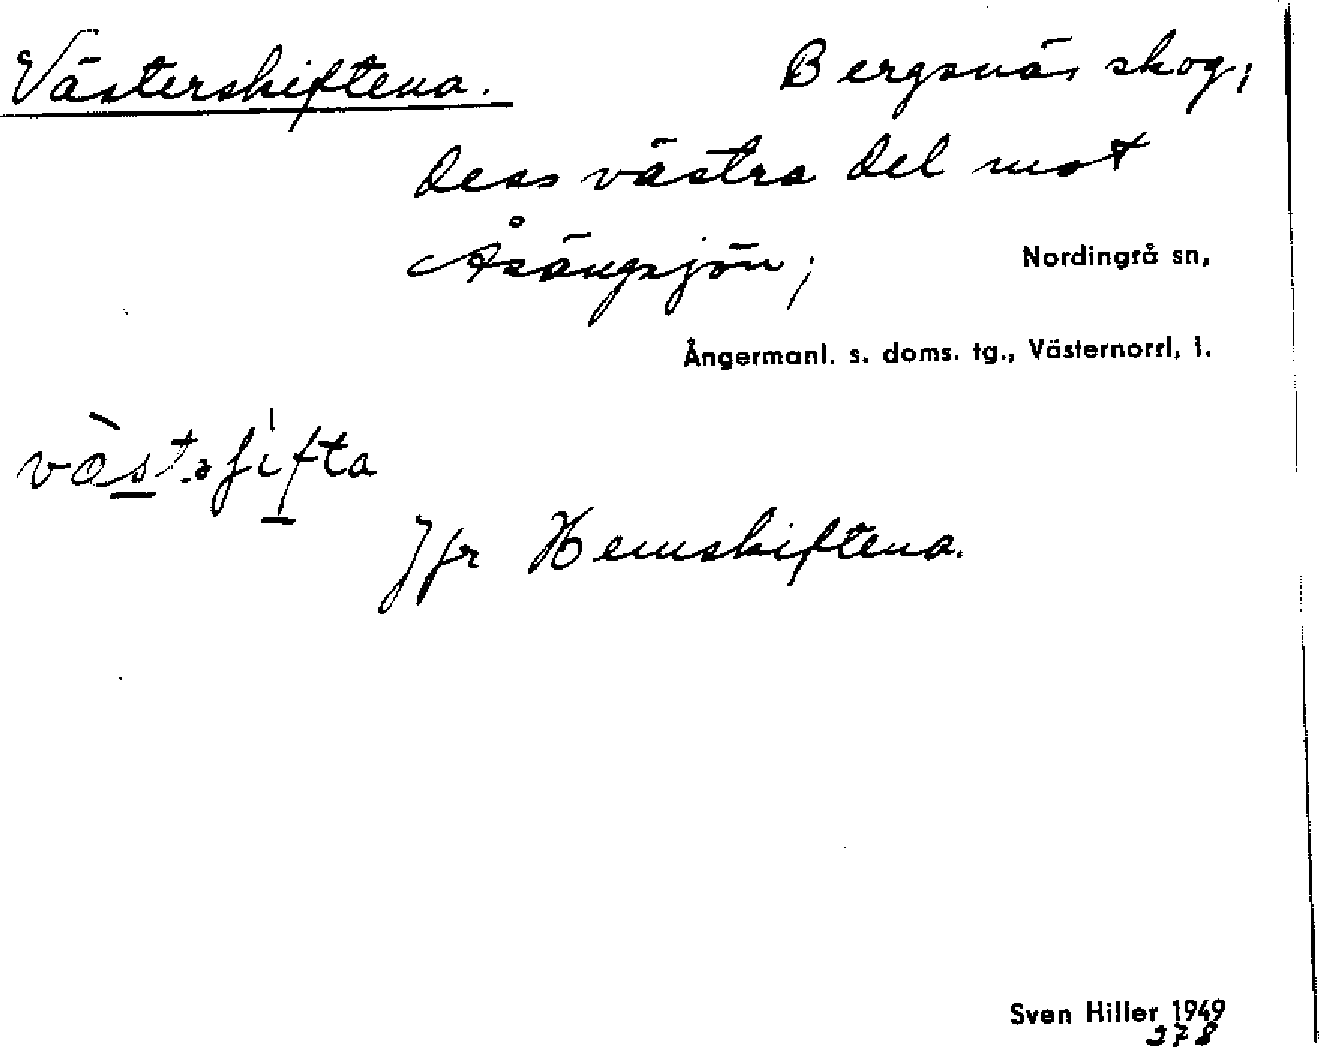 Västerskiftena. Bergsnäs skog,
dess västra del mot
Åsängsjön; Nordingrå sn,
Ångermanl. s. doms. tg., Västernorrl. l.
Jfr Hemskiftena.
Sven Hiller 1949
278